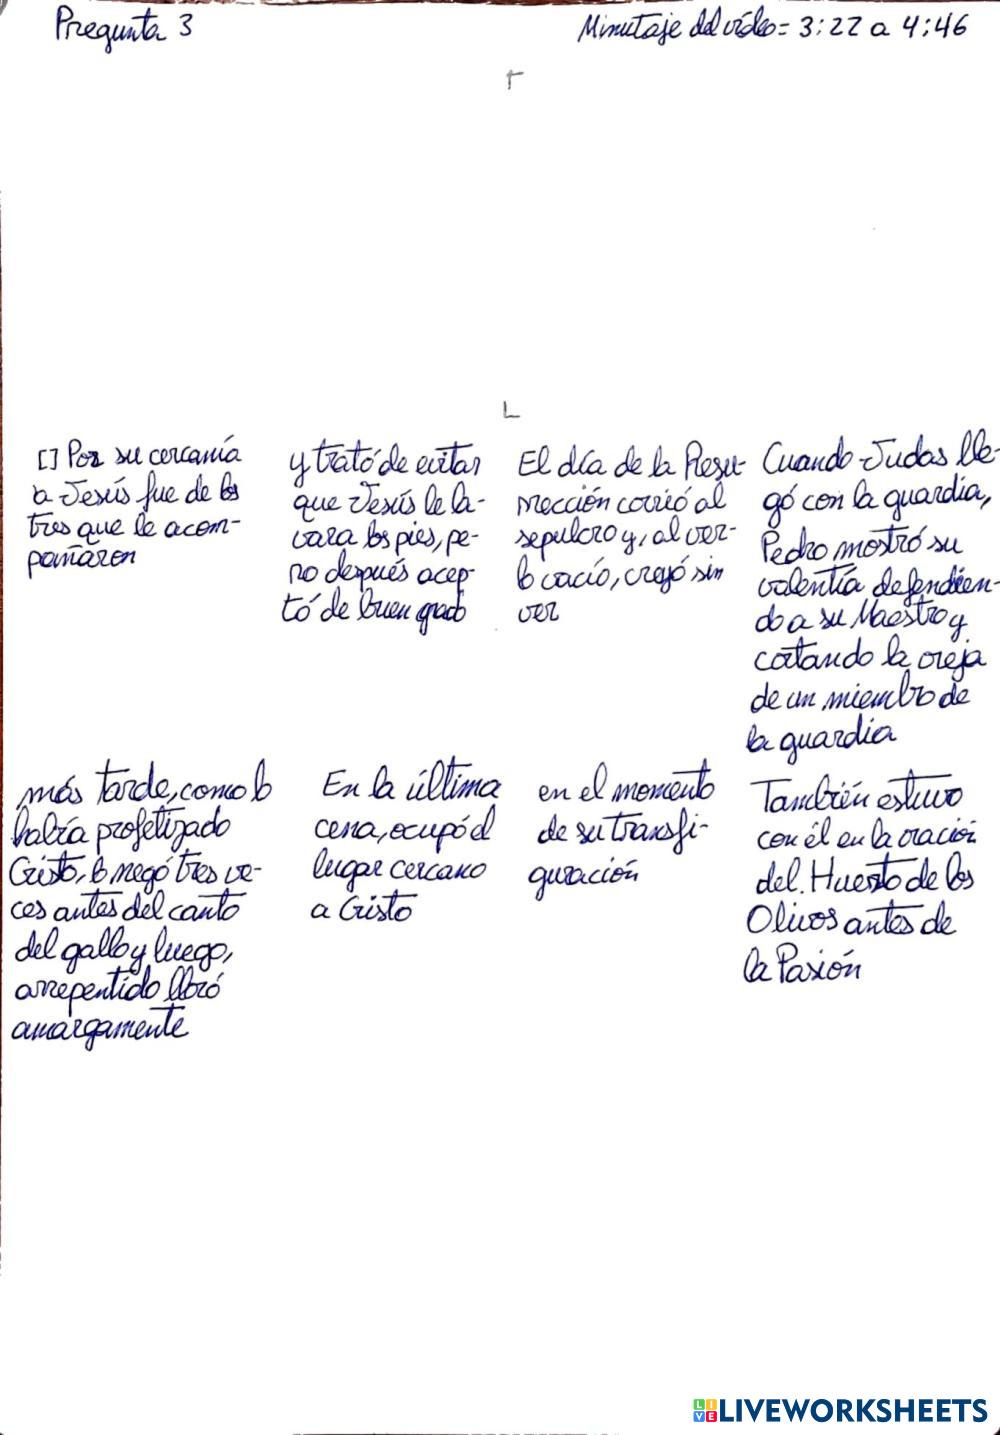 Pregunta 3
Minutaje del vídeo = 3:22 a 4:46
[] Por su cercanía
a Jesús fue de los
tres que le acom-
pañaron
y trató de evitar
que Jesús le la-
vara los pies, pe-
ro después acep-
tó de buen grado
El día de la Resu-
rrección corrió al
sepulcro y, al ver-
lo vacío, creyó sin
ver
Cuando Judas lle-
gó con la guardia,
Pedro mostró su
valentía defendien-
do a su Maestro y
cortando la oreja
de un miembro de
la guardia
más tarde, como lo
había profetizado
Cristo, lo negó tres ve-
ces antes del canto
del gallo y luego,
arrepentido lloró
amargamente
En la última
cena, ocupó el
lugar cercano
a Cristo
en el momento
de su transfi-
guración
También estuvo
con él en la oración
del Huerto de los
Olivos antes de
la Pasión
LIVEWORKSHEETS